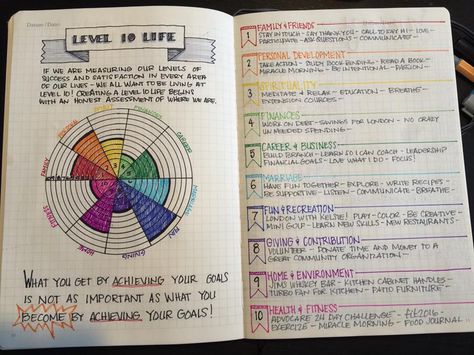 Datum / Date:
LEVEL 10 LIFE
IF WE ARE MEASURING OUR LEVELS OF
SUCCESS AND SATISFACTION IN EVERY AREA
OF OUR LIVES - WE ALL WANT TO BE LIVING AT
LEVEL 10! CREATING A LEVEL 10 LIFE BEGINS
WITH AN HONEST ASSESSMENT OF WHERE WE ARE.
SPIRIT
FINANCES
CAREER
MARRIAGE
FUN
GIVING
HOME
FITNESS
FAMILY
WHAT YOU GET BY ACHIEVING YOUR GOALS
IS NOT AS IMPORTANT AS WHAT YOU
BECOME BY ACHIEVING YOUR GOALS!
Datum / Date:
1 FAMILY & FRIENDS
STAY IN TOUCH - SAY THANK YOU - CALL TO SAY HI - LOVE -
PARTICIPATE - ASK QUESTIONS - COMMUNICATE -
2 PERSONAL DEVELOPMENT
TAKE ACTION - STUDY BOOK BINDING - READ A BOOK -
MIRACLE MORNING - BE INTENTIONAL - PASSION -
3 SPIRITUALITY
MEDITATE & RELAX - EDUCATION - BREATHE -
EXTENSION COURSES -
4 FINANCES
WORK ON DEBT - SAVINGS FOR LONDON - NO CRAZY
UN NEEDED SPENDING -
5 CAREER & BUSINESS
BUILD BRANCH - LEARN TO I CAN COACH - LEADERSHIP
FINANCIAL GOALS - LOVE WHAT I DO - FOCUS!
6 MARRIAGE
HAVE FUN TOGETHER - EXPLORE - WRITE RECIPES -
BE SUPPORTIVE - LISTEN - COMMUNICATE - BREATHE -
7 FUN & RECREATION
LONDON WITH KELSIE! PLAY - COLOR - BE CREATIVE -
MINI GOLF - LEARN NEW SKILLS - NEW RESTAURANTS -
8 GIVING & CONTRIBUTION
VOLUNTEER - DONATE TIME AND MONEY TO A
GREAT COMMUNITY ORGANIZATION -
9 HOME & ENVIRONMENT
JIMS WHISKEY BAR - KITCHEN CABINET HANDLES -
TURBO FAN FOR KITCHEN - PATIO FURNITURE -
10 HEALTH & FITNESS
ADVOCARE 24 DAY CHALLENGE - fit2016 -
EXERCIZE - MIRACLE MORNING - FOOD JOURNAL -